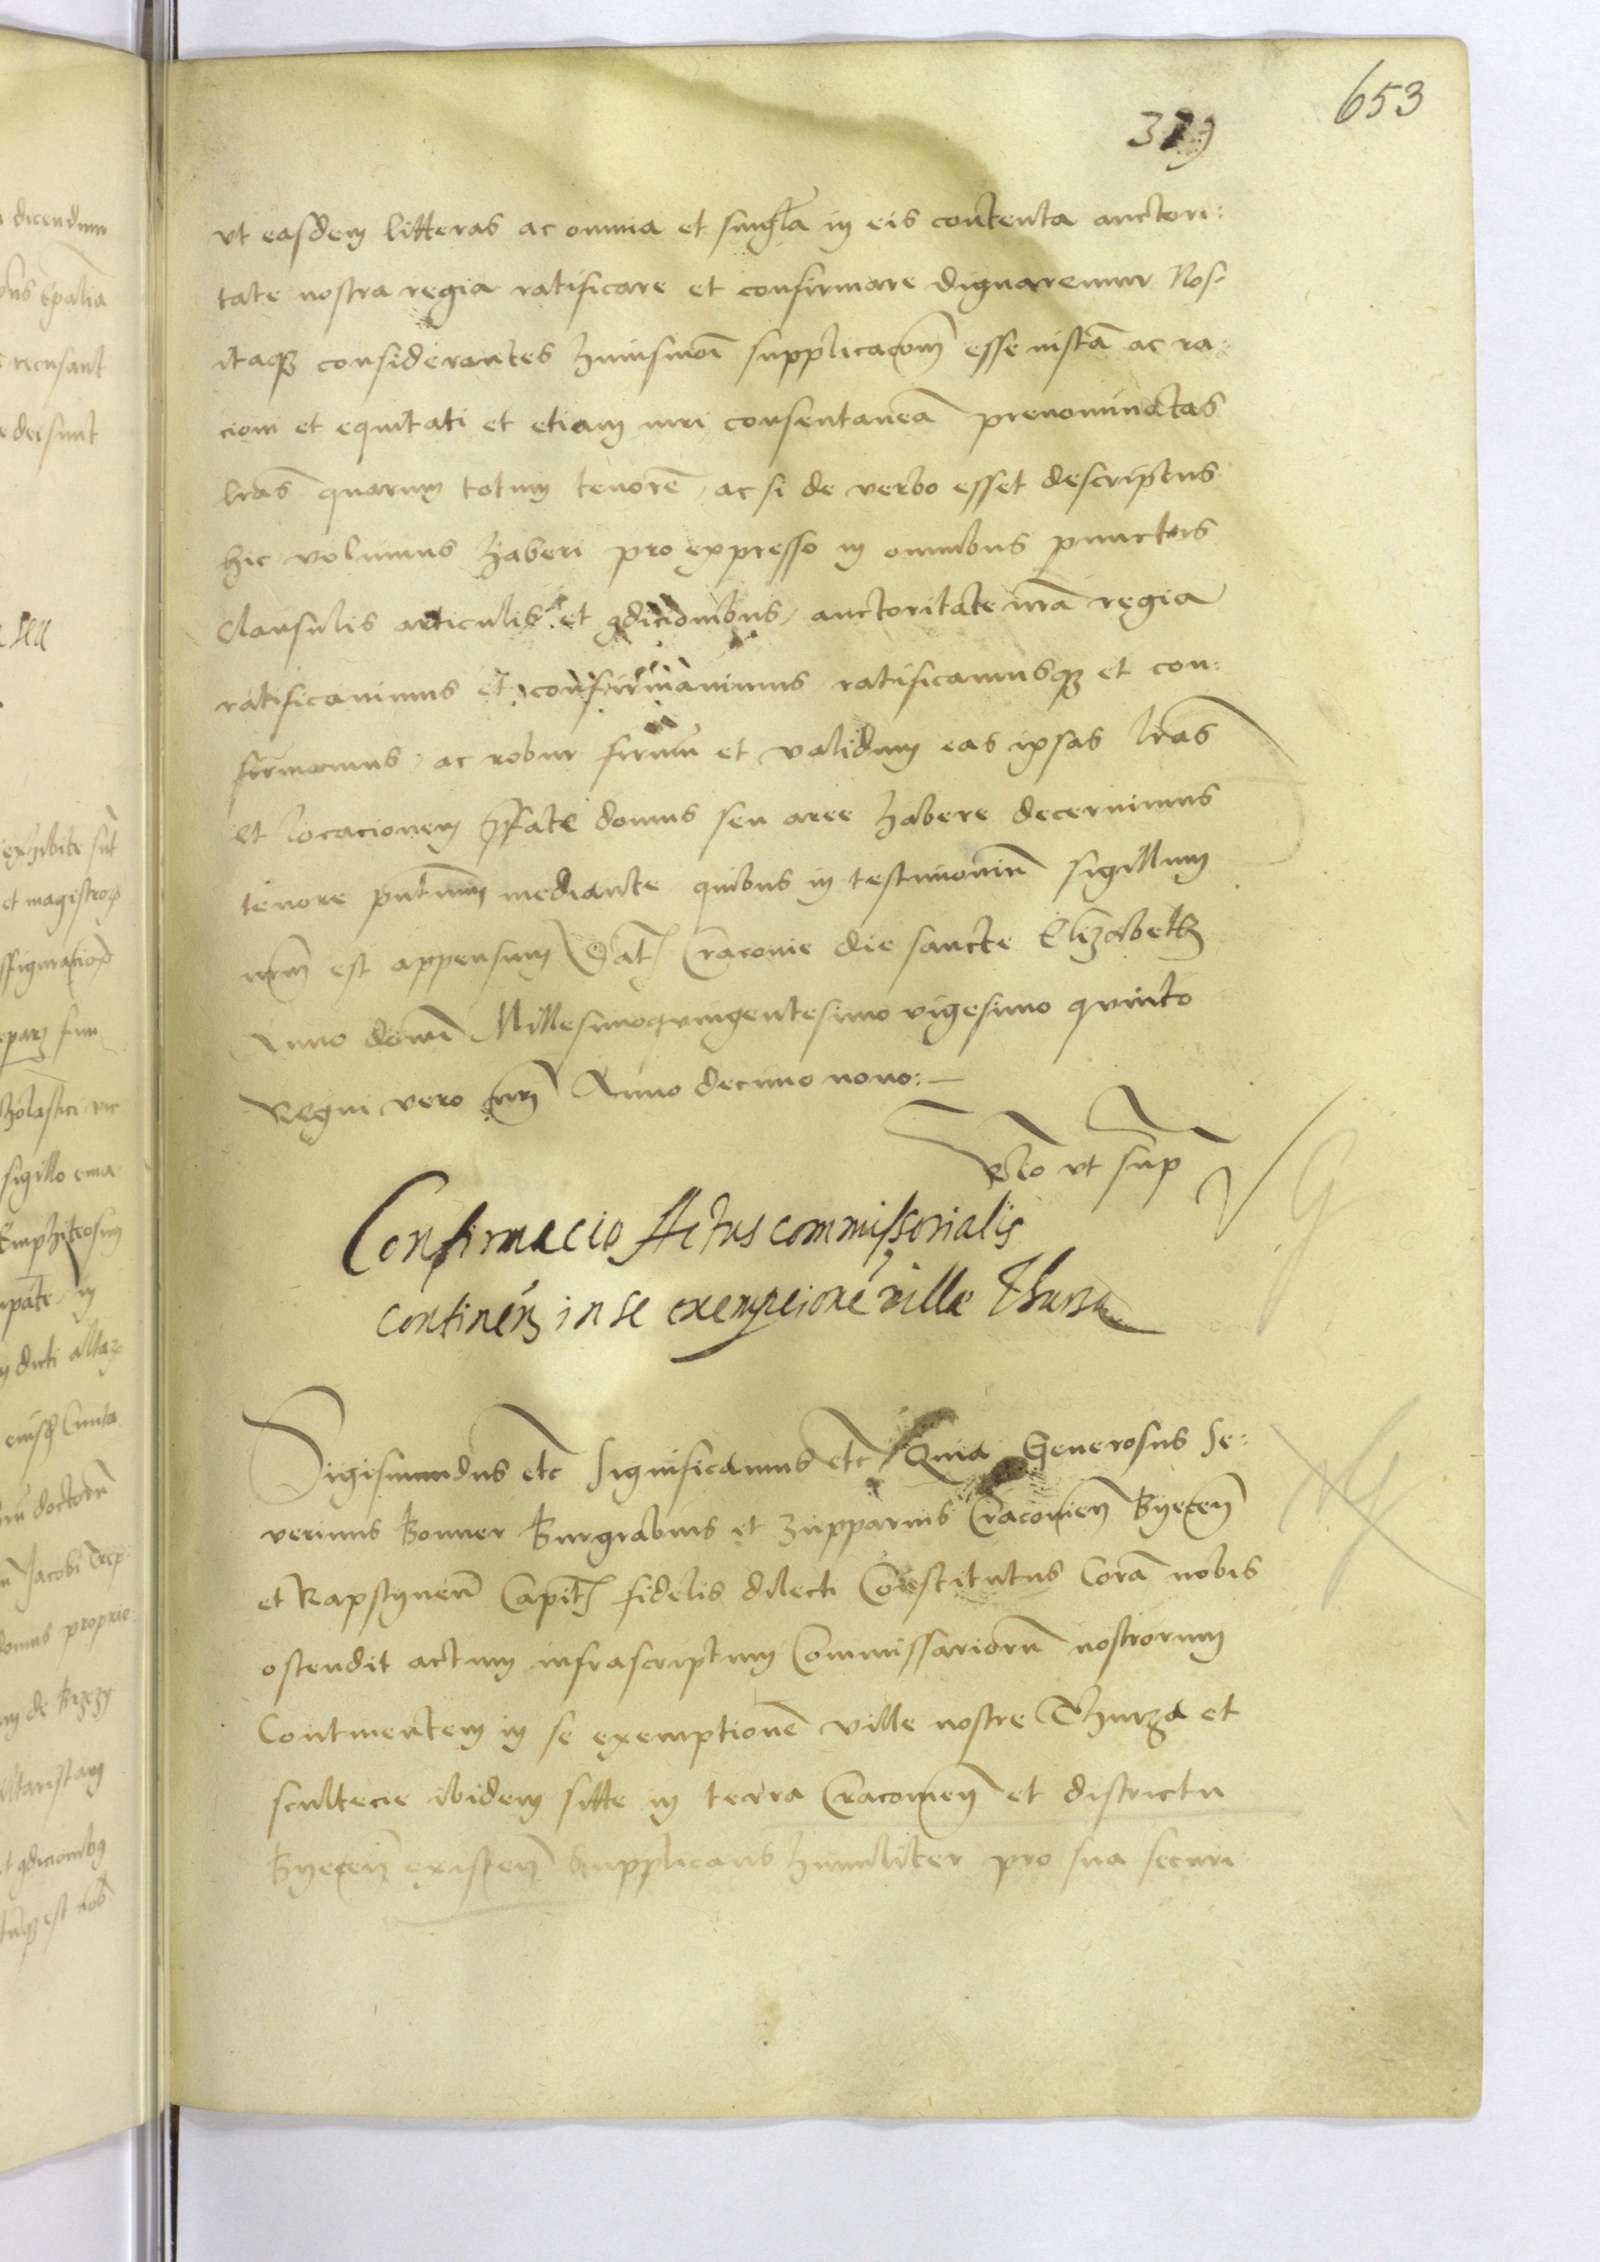 653
319
vt easdem litteras ac omnia et singla in eis contenta auctori:
tate nostra regia ratificare et confirmare dignaremur Nos
itaqz considerantes huiusmoi supplicacom esse iustã ac ra:
cioni et equitati et etiam iuri consentaneã prenominatas
lras quarum totum tenorē ac si de verbo esset descriptus
hic volumus haberi pro expresso in omnibus punctis
clausulis articulis et gdicionibus auctoritate nrã regia
ratificauimus et confirmauimus ratificamusqz et con:
firmamus ac robur firmū et validum eas ipsas lras
et locacionem pfate domus seu aree habere decernimus
tenore pntium mediante quibus in testimoniū sigillum
nrm est appensum Dat Cracouie die sancte Elizabeth
Anno domi Millesimoquingentesimo vigesimo quinto
Regni vero nri Anno decimo nono:—
Rlo vt sup
Confirmacio Actus commissorialis
continen in se exempcionē villae Thursa
Sigismundus etc Significamus etc Quia Generosus Se:
verinus Bonner Burgrabius et zupparius Cracouien Byecen
et Rapstynen Capit fidelis dilecti Constitutus Corã nobis
ostendit actum infrascriptum Commissariorū nostrorum
Continentem in se exemptionē ville nostre Thurza et
scultecie ibidem sitte in terra Cracouien et districtu
Byecen existen Supplicans humiliter pro sua securi